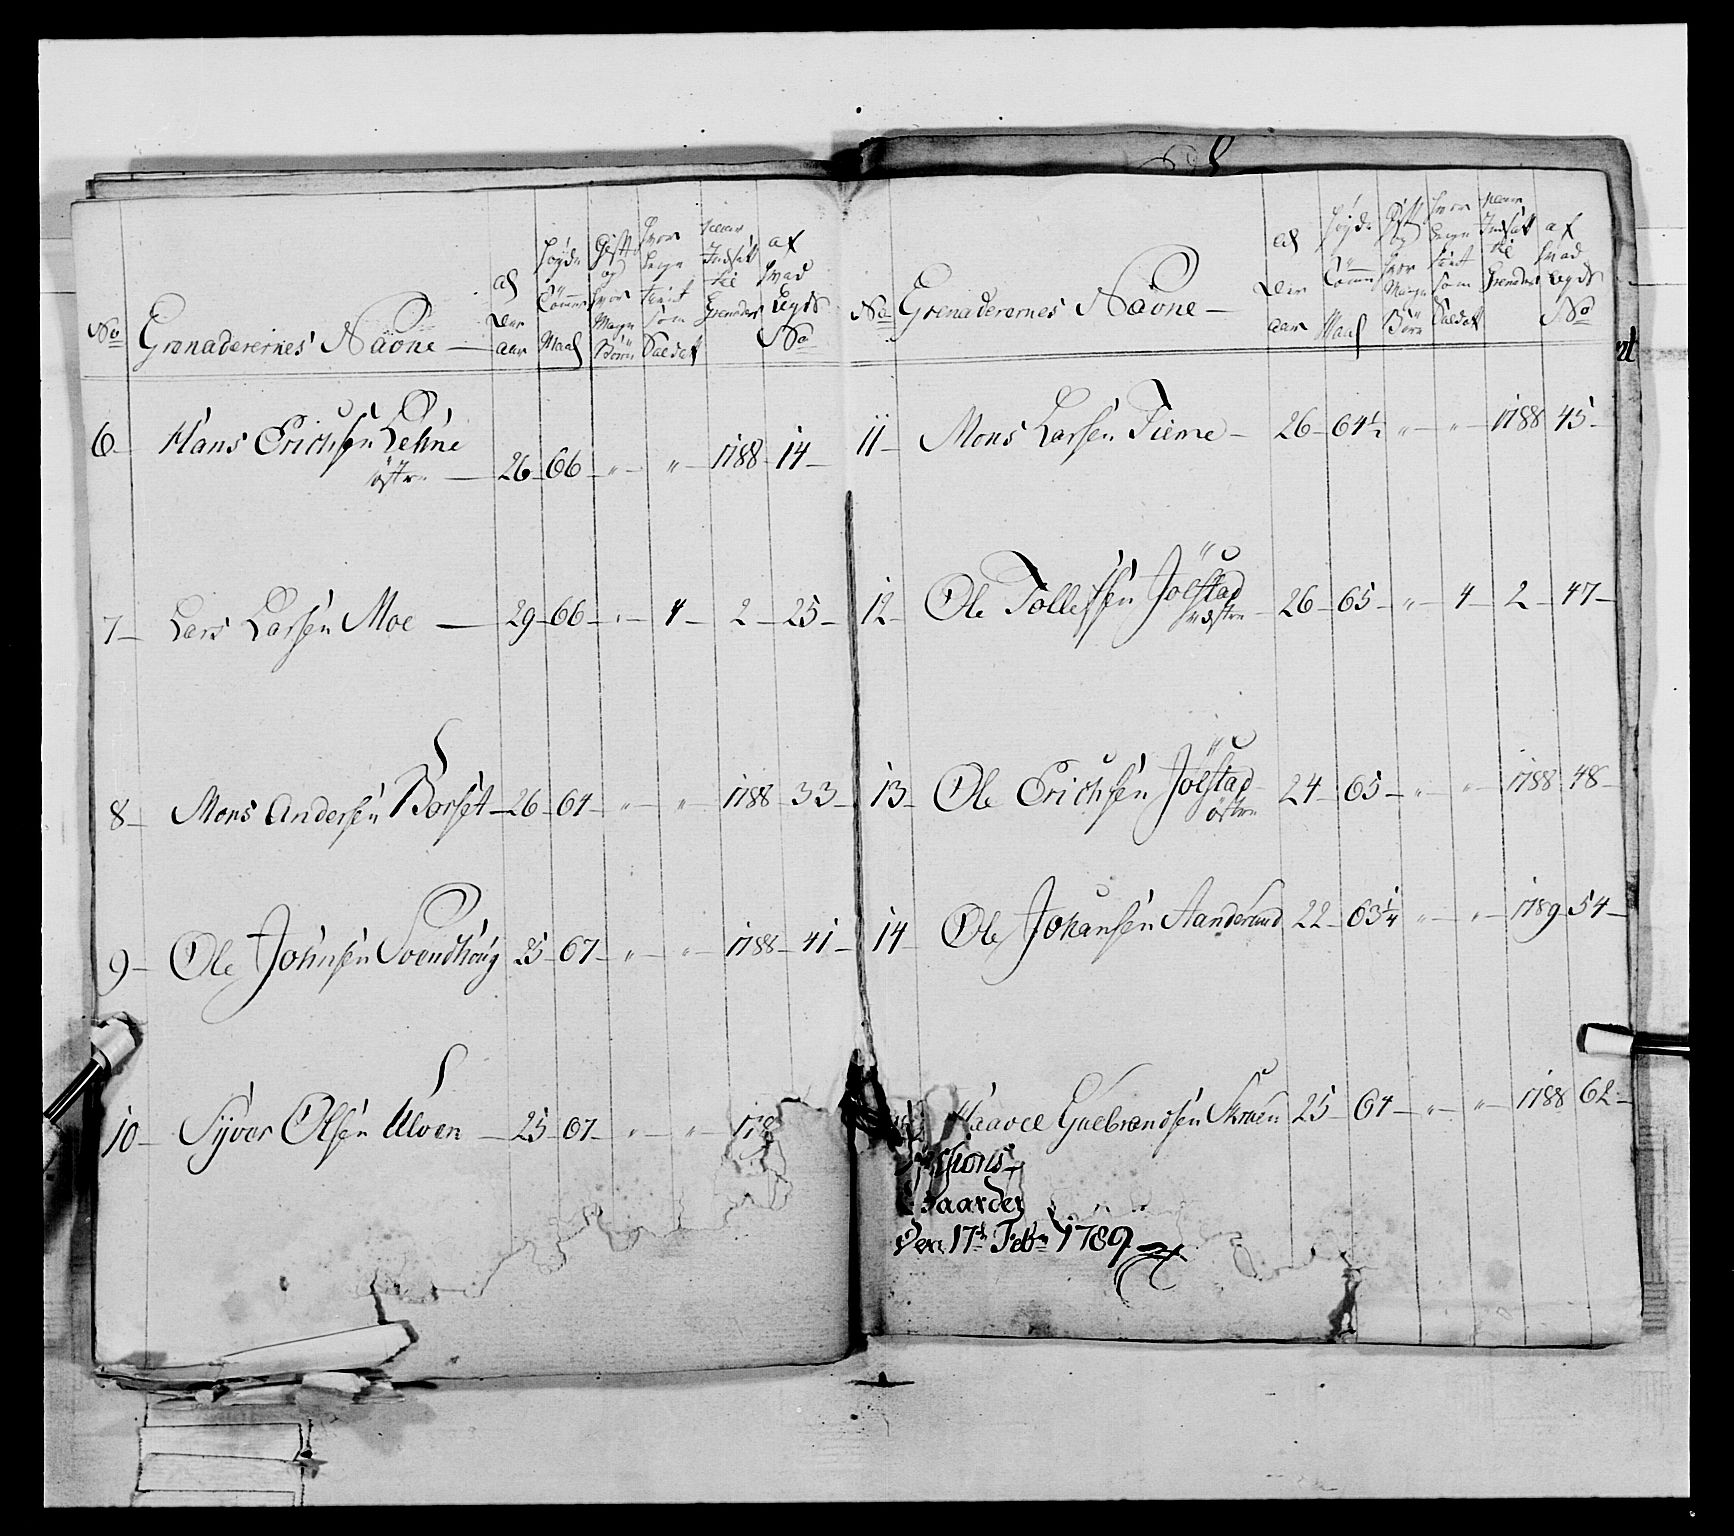 No Grenaderernes Navne al Der aar Høyde Tömme Maal Gift og hvor Mange Börn hvor længe tient som Saldat naar Indsat til Grenader af hvad Lægds No
6 Hans Erichsen Lehne
östre 26 66 " " 1788 14
7 Lars Larsen Moe 29 66 " 4 2 25
8 Mons Andersen Borset 26 64 " " 1788 33
9 Ole Johnsen Svendhoug 25 67 " " 1788 41
10 Syver Olsen Ulven 25 67 " " 178
No Grenaderernes Navne al Der aar Høyde Tömme Maal Gift og hvor Mange Börn hvor længe tient som Saldat naar Indsat til Grenader af hvad Lægds No
11 Mons Larsen Tierne 26 64½ " " 1788 45
12 Ole Tollefsen Jölstad
26 65 " 4 2 47
13 Ole Erichsen Jölstad
östre 24 65 " " 1788 48
14 Ole Johansen Aanderud 22 63¼ " " 1789 54
Haavel Gulbrandsen 25 64 " " 1788 62
Den 17de Febr 1789